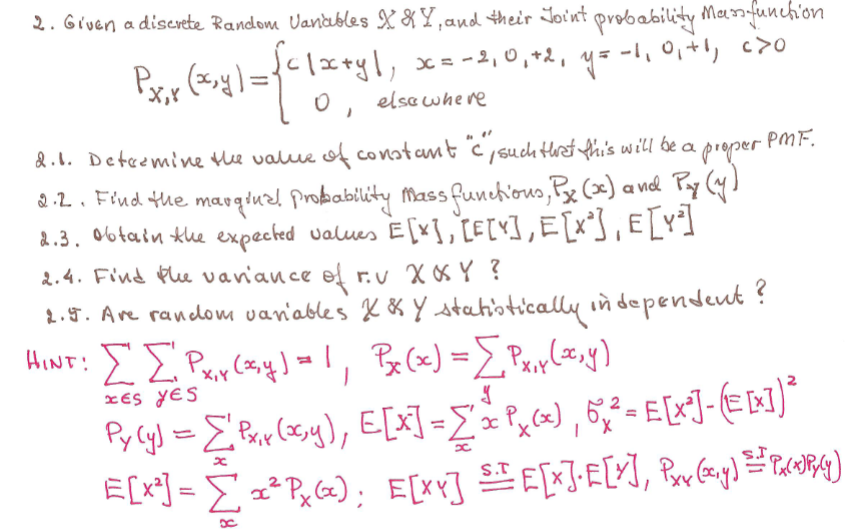 2. Given a discrete Random Variables X & Y, and their Joint probability Mass function
P_{X,Y}(x,y) = { c|x+y|, x = -2, 0, +2, y = -1, 0, +1, c>0
0, elsewhere
2.1. Determine the value of constant "c", such that this will be a proper PMF.
2.2. Find the marginal Probability Mass functions, P_X(x) and P_Y(y)
2.3. Obtain the expected values E[X], [E[Y], E[X²], E[Y²]
2.4. Find the variance of r.v X & Y ?
2.5. Are random variables X & Y statistically independent ?
HINT: Σ_{x∈S} Σ_{y∈S} P_{X,Y}(x,y) = 1, P_X(x) = Σ_y P_{X,Y}(x,y)
P_Y(y) = Σ_x P_{X,Y}(x,y), E[X] = Σ_x x P_X(x), σ_X² = E[X²]-(E[X])²
E[X²] = Σ_x x² P_X(x); E[XY] S.I= E[X]·E[Y], P_{XY}(x,y) S.I= P_X(x)P_Y(y)